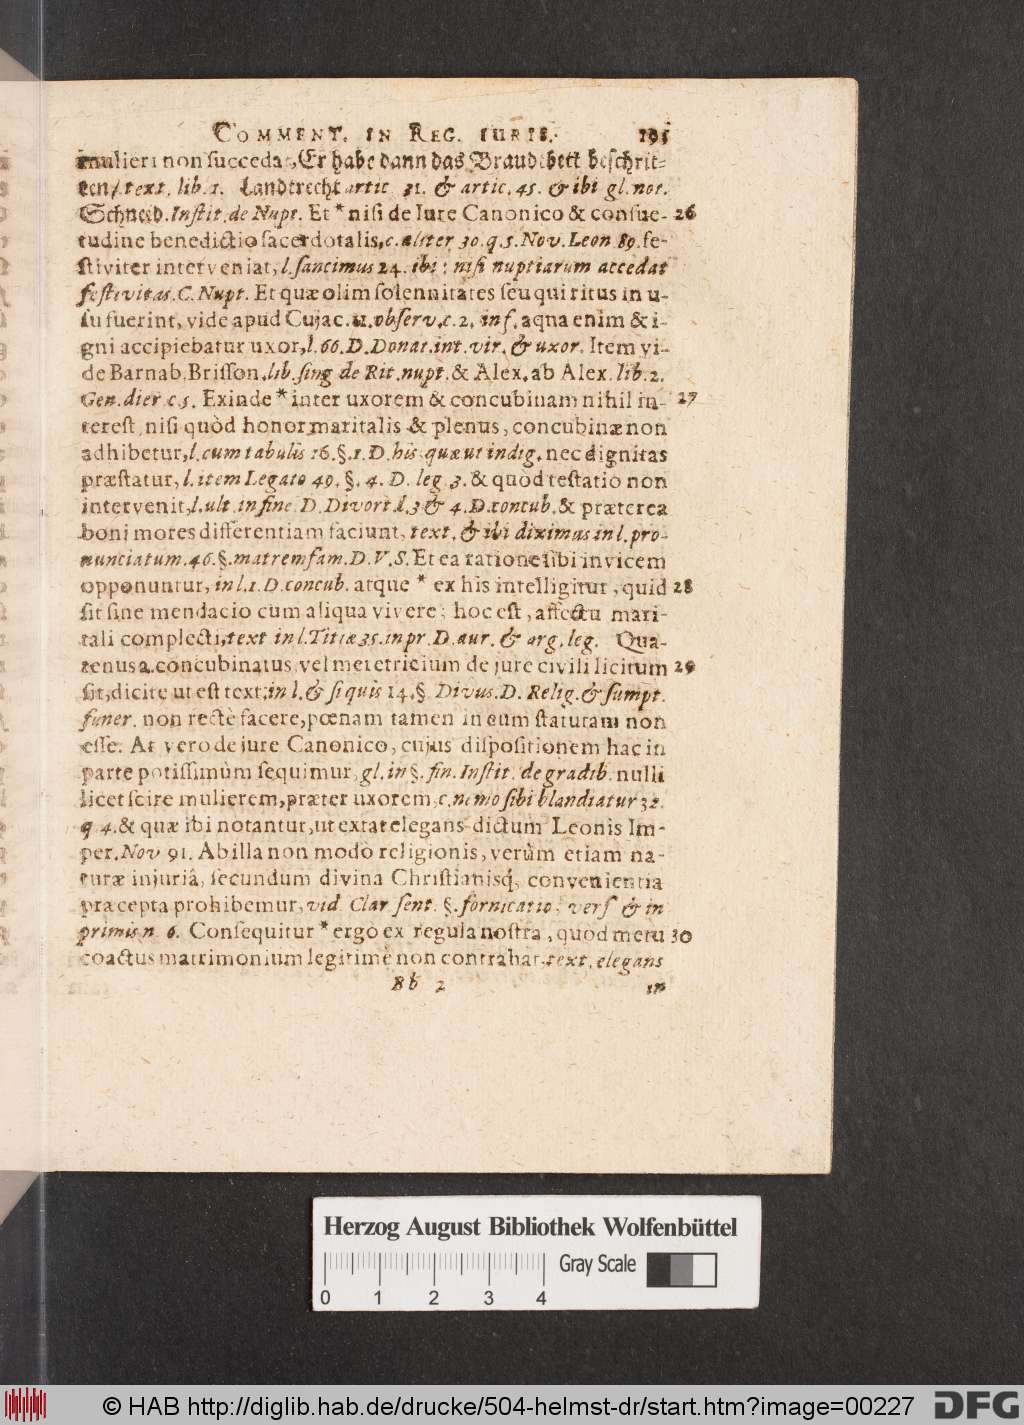 COMMENT. IN REG. IURIS. 195
mulieri non succedat, Er habe dann das Braudtbett beschrit-
ten / text. lib. 1. Landtrecht artic. 31. & artic. 45. & ibi gl. not.
Schneid. Instit. de Nupt. Et * nisi de Iure Canonico & consue- 26
tudine benedictio sacerdotalis, c. aliter 30. q. 5. Nov. Leon 89. fe-
stiviter interveniat, l. sancimus 24. ibi: nisi nuptiarum accedat
festivitas. C. Nupt. Et quæ olim solennitates seu qui ritus in u-
su fuerint, vide apud Cujac. 11. observ. c. 2. inf. aqua enim & i-
gni accipiebatur uxor, l. 66. D. Donat. int. vir. & uxor. Item vi-
de Barnab. Brisson. lib. sing de Rit. nupt. & Alex. ab Alex. lib. 2.
Gen. dier c. 5. Exinde * inter uxorem & concubinam nihil in- 27
terest, nisi quòd honor maritalis & plenus, concubinæ non
adhibetur, l. cum tabulis 16. §. 1. D. his quæ ut indig. nec dignitas
præstatur, l. item Legato 49. §. 4. D. leg. 3. & quòd testatio non
intervenit, l. ult. in fine D. Divort l. 3 & 4. D. concub. & præterea
boni mores differentiam faciunt, text. & ibi diximus in l. pro-
nunciatum. 46. §. matremfam. D. V. S. Et ea ratione sibi invicem
opponuntur, in l. 1. D. concub. atque * ex his intelligitur, quid 28
sit sine mendacio cum aliqua vivere: hoc est, affectu mari-
tali complecti, text in l. Titiæ 35. in pr. D. aur. & arg. leg. Qua-
tenus a. concubinatus vel meretricium de jure civili licitum 29
sit, dicite ut est text. in l. & si quis 14. §. Divus. D. Relig. & sumpt.
funer. non rectè facere, pœnam tamen in eum staturam non
esse. At vero de jure Canonico, cujus dispositionem hac in
parte potissimùm sequimur, gl. in §. fin. Instit. de gradib. nulli
licet scire mulierem, præter uxorem, c. nemo sibi blandiatur 32.
q 4. & quæ ibi notantur, ut extat elegans dictum Leonis Im-
per. Nov 91. Ab illa non modò religionis, verùm etiam na-
turæ injuriâ, secundum divina Christianisq́; convenientia
præcepta prohibemur, vid. Clar sent. §. fornicatio. vers & in
primis n. 6. Consequitur * ergò ex regula nostra, quòd metu 30
coactus matrimonium legitimè non contrahat. text. elegans
Bb 2 in
Herzog August Bibliothek Wolfenbüttel
Gray Scale
0 1 2 3 4
© HAB http://diglib.hab.de/drucke/504-helmst-dr/start.htm?image=00227 DFG